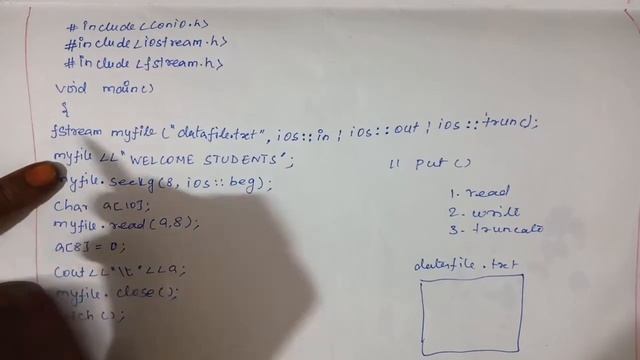 #include<conio.h>
#include<iostream.h>
#include<fstream.h>
void main()
{
fstream myfile ("datafile.txt", ios::in | ios::out | ios::trunc);
myfile << "WELCOME STUDENTS";
myfile.seekg(8, ios::beg);
char a[10];
myfile.read(a,8);
a[8]=0;
cout<<"\t"<<a;
myfile.close();
();
// put ()
1. read
2. write
3. truncate
datafile.txt